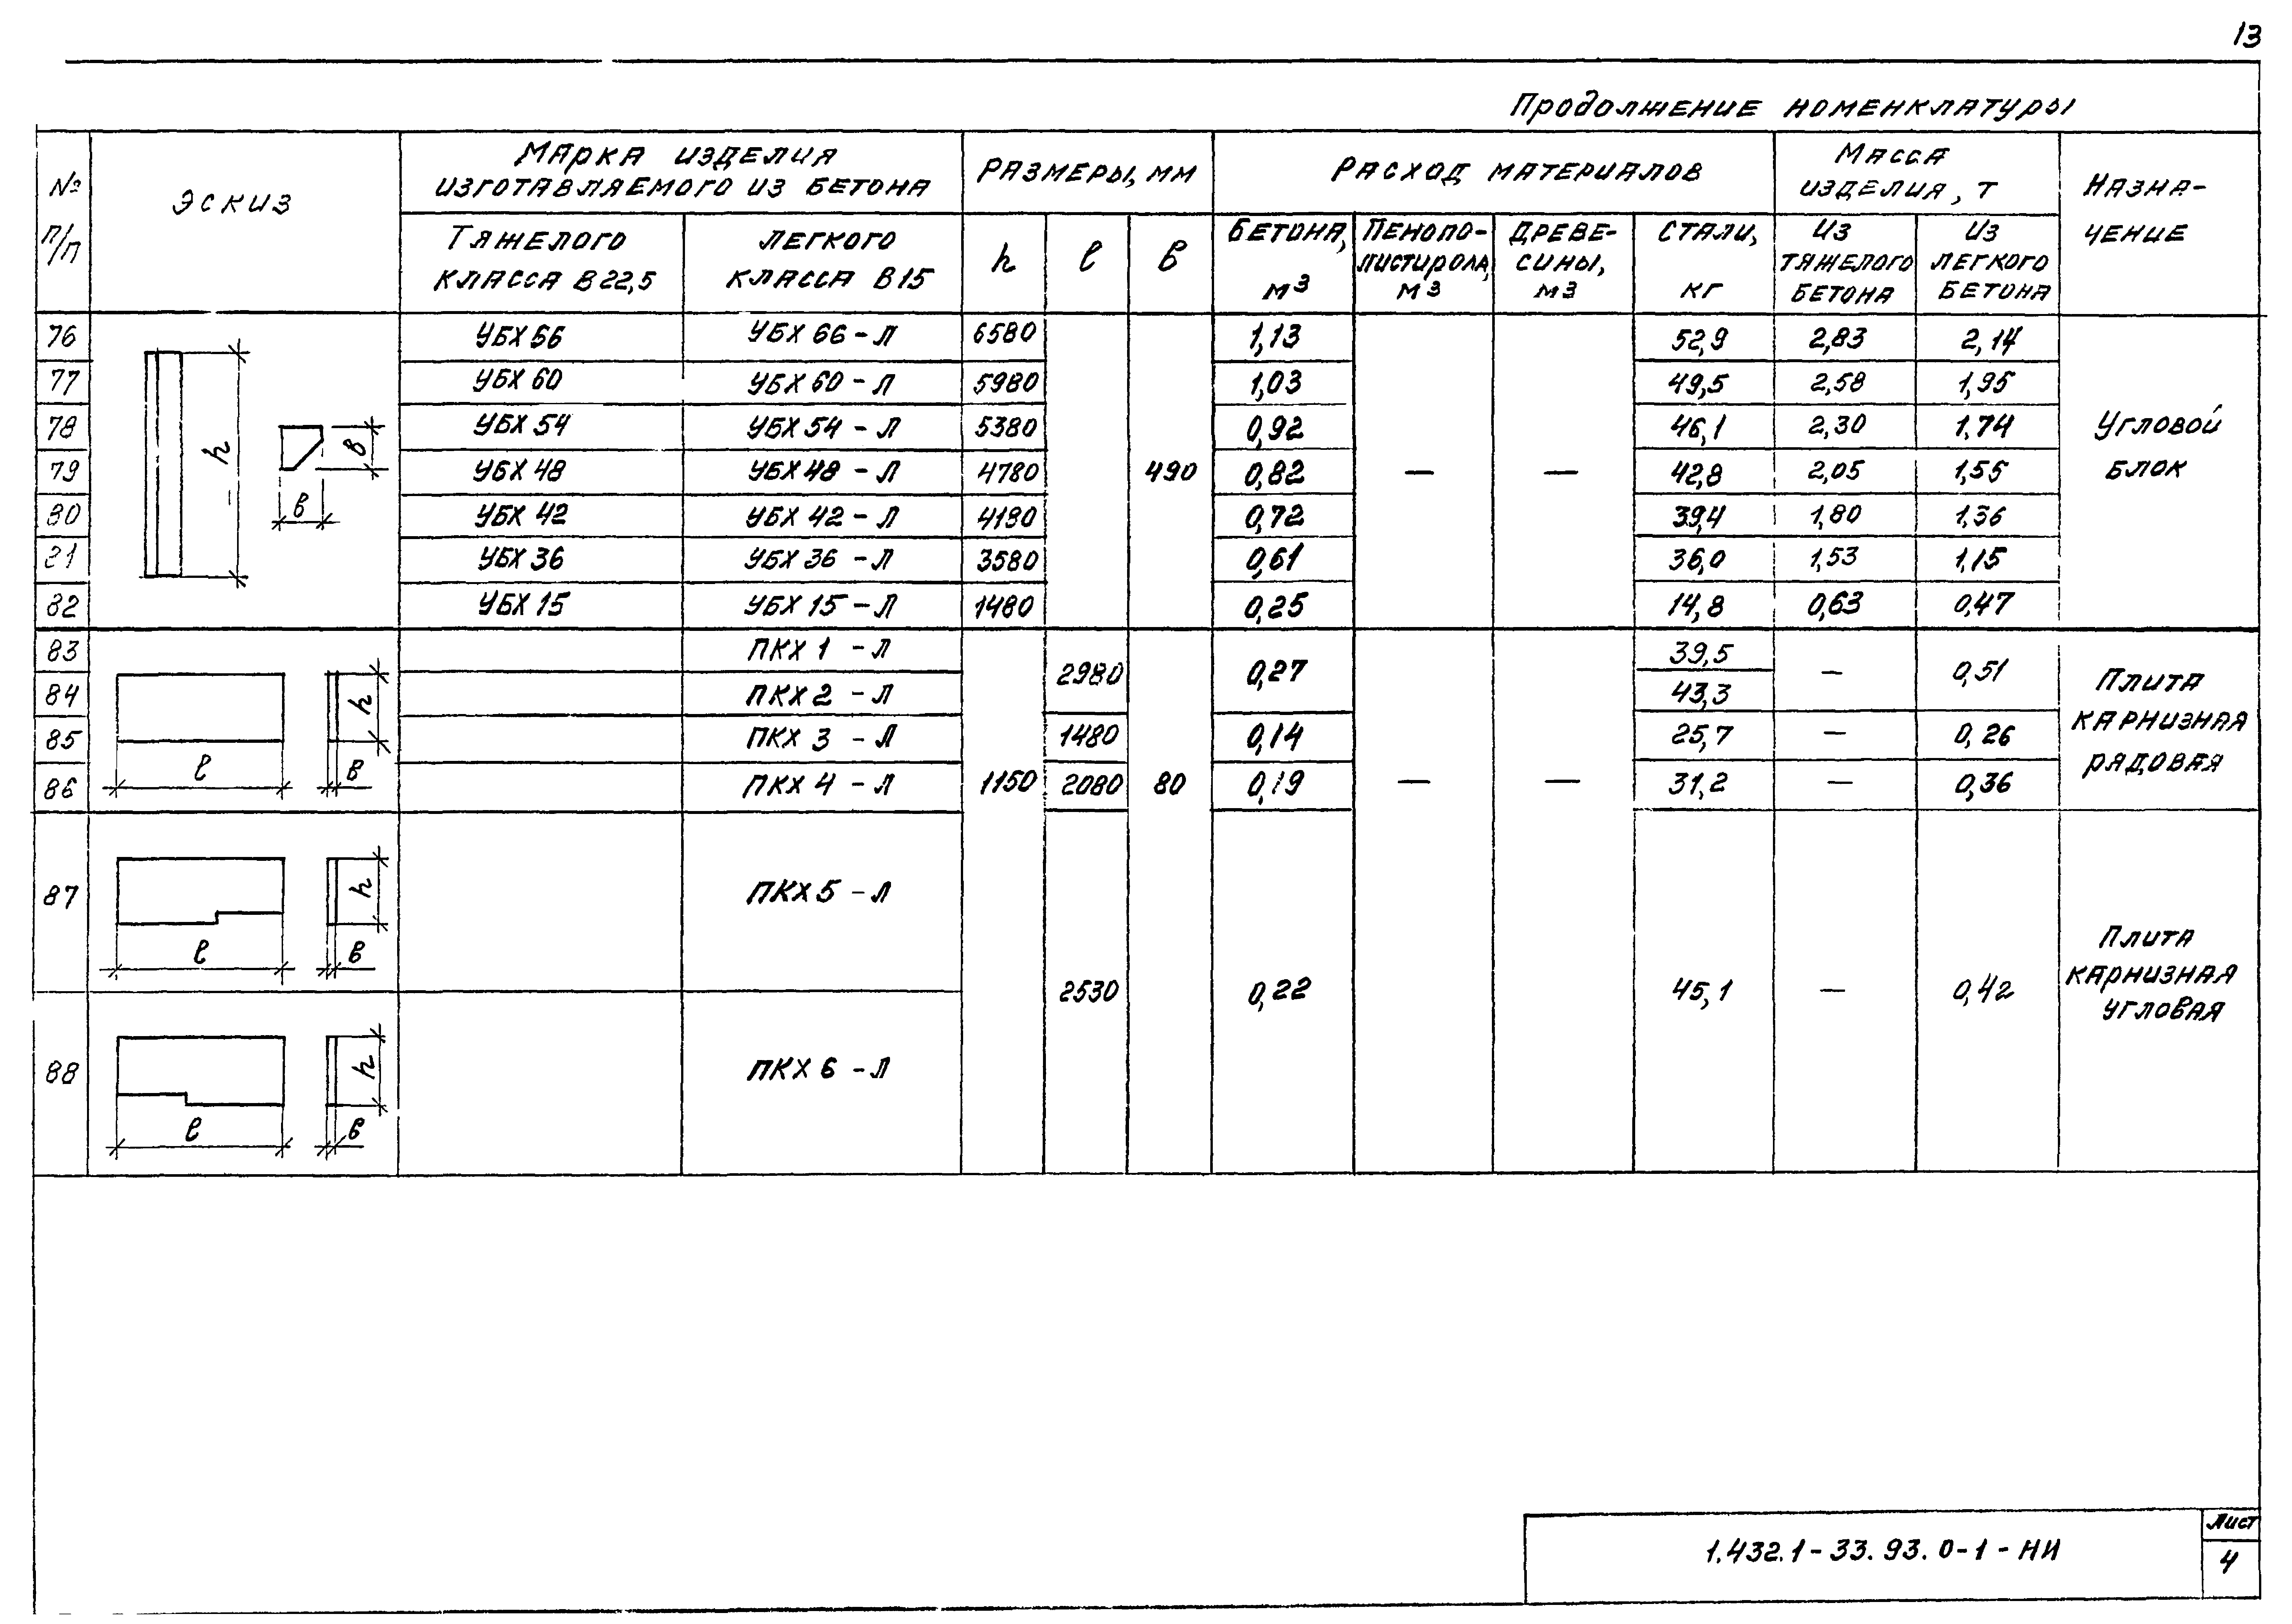 13
Продолжение номенклатуры
№ п/п
Эскиз
Марка изделия
изготавляемого из бетона
Тяжелого
класса В22,5
легкого
класса В15
Размеры, мм
h l в
Расход материалов
Бетона, м3
Пенопо-
листирола, м3
Древе-
сины, м3
Стали, кг
Масса
изделия, т
Из
тяжелого
бетона
Из
легкого
бетона
Назна-
чение
76 УБХ 66 УБХ 66-Л 6580 1,13 52,9 2,83 2,14
77 УБХ 60 УБХ 60-Л 5980 1,03 49,5 2,58 1,95
78 УБХ 54 УБХ 54-Л 5380 0,92 46,1 2,30 1,74
79 УБХ 48 УБХ 48-Л 4780 490 0,82 — — 42,8 2,05 1,55
80 УБХ 42 УБХ 42-Л 4180 0,72 39,4 1,80 1,36
81 УБХ 36 УБХ 36-Л 3580 0,61 36,0 1,53 1,15
82 УБХ 15 УБХ 15-Л 1480 0,25 14,8 0,63 0,47
h
в
в
Угловой
блок
83 ПКХ 1-Л 39,5
2980 0,27 — 0,51
84 ПКХ 2-Л 43,3
85 ПКХ 3-Л 1480 0,14 25,7 — 0,26
86 ПКХ 4-Л 1150 2080 80 0,19 — — 31,2 — 0,36
h
l в
Плита
карнизная
рядовая
87 ПКХ 5-Л
h
l в
2530 0,22 45,1 — 0,42
Плита
карнизная
угловая
88 ПКХ 6-Л
h
l в
1.432.1-33.93.0-1-НИ
Лист
4